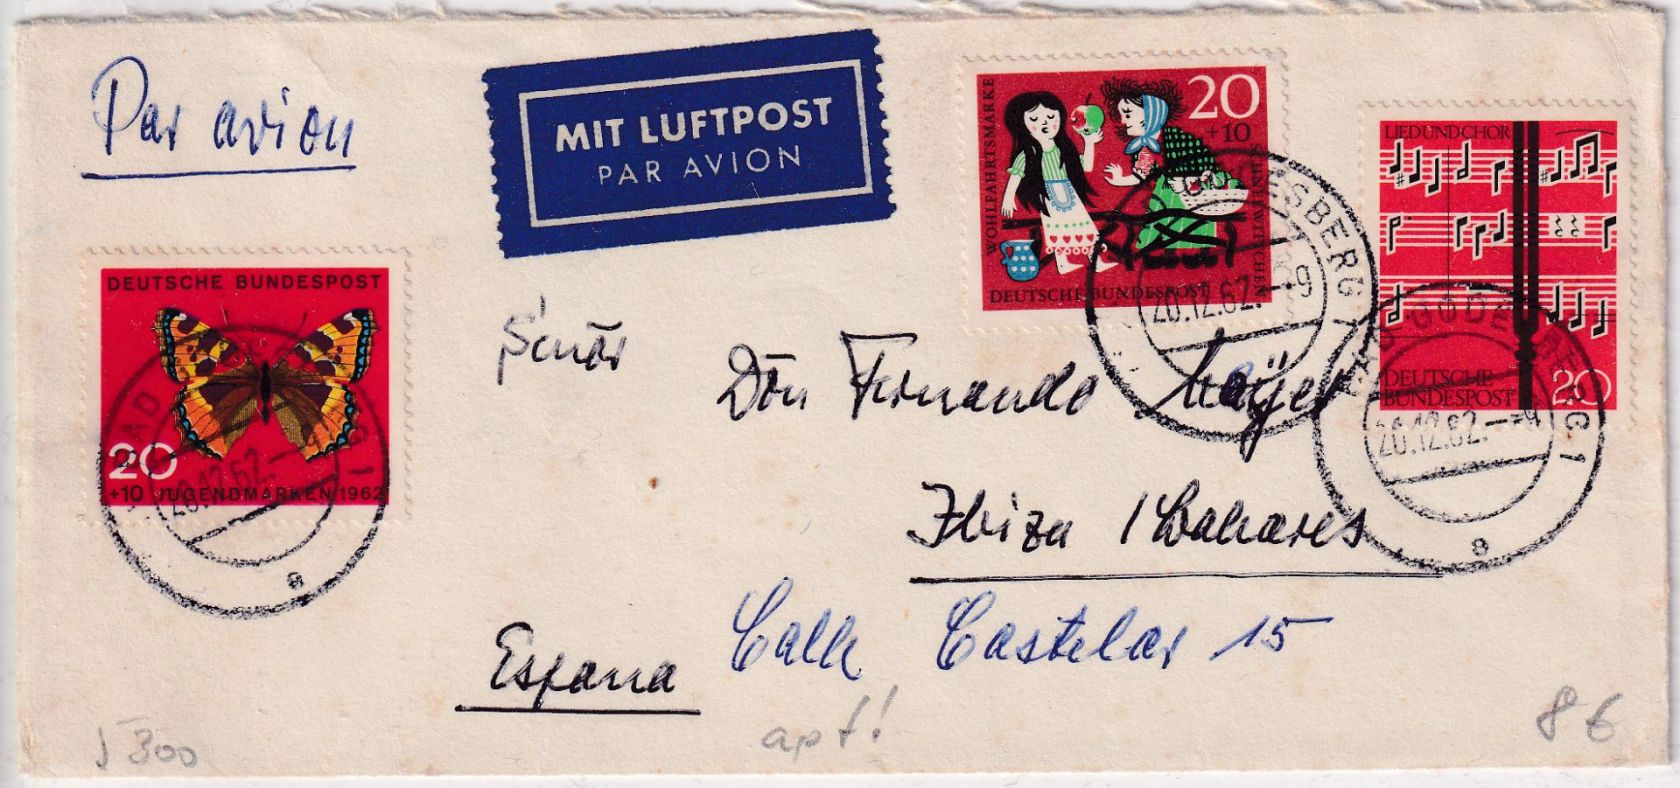 Par avion
MIT LUFTPOST
PAR AVION
20
+10
WOHLFAHRTSMARKE
SCHNEEWITTCHEN
DEUTSCHE BUNDESPOST
LIED UND CHOR
DEUTSCHE
BUNDESPOST
20
DEUTSCHE BUNDESPOST
20
+10 JUGENDMARKEN 1962
BAD GODESBERG 1
20.12.62.
a
ESBERG 1
20.12.62.-9
BAD GODESBERG 1
20.12.62.
a
Señor
Don Fernando Mayer
Ibiza / Baleares
Calle Castelar 15
España
apt!
300
8€